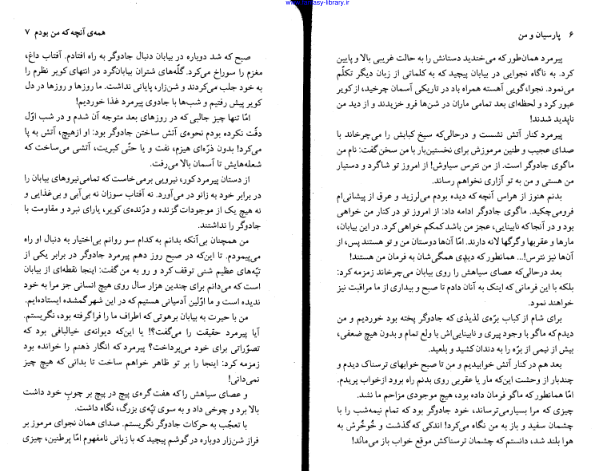 www.fantasy-library.ir
۶ پارسیان و من
پیرمرد همان‌طور که می‌خندید دستانش را به حالت غریبی بالا و پایین
کرد. به ناگاه نجوایی در بیابان پیچید که به کلماتی از زبان دیگر تکلّم
می‌نمود. نجواگویی آهسته همراه باد در تاریکی آسمان چرخید، از کویر
عبور کرد و لحظه‌ای بعد تمامی ماران در شن‌ها فرو خزیدند و از دید من
ناپدید شدند!
پیرمرد کنار آتش نشست و درحالی‌که سیخ کبابش را می‌چرخاند با
صدای عجیب و طنین مرموزش برای نخستین‌بار با من سخن گفت: نام من
ماگوی جادوگر است. از من نترس سیاوش! از امروز تو شاگرد و دستیار
من هستی و من به تو آزاری نخواهم رساند.
بدنم هنوز از هراس آنچه که دیده بودم می‌لرزید و عرق از پیشانی‌ام
فرومی‌چکید. ماگوی جادوگر ادامه داد: از امروز تو در کنار من خواهی
بود و در آنجا که نابینایی، عجز من باشد کمکم خواهی کرد. در این بیابان،
مارها و عقربها و گرگها لانه دارند. امّا آن‌ها دوستان من و تو هستند پس، از
آن‌ها نیز نترس!... همانطور که دیدی همگی‌شان به فرمان من هستند!
بعد درحالی‌که عصای سیاهش را روی بیابان می‌چرخاند زمزمه کرد:
بلکه با این فرمانی که اینک به آنان دادم تا صبح و بیداری از ما مراقبت نیز
خواهند نمود.
برای شام از کباب برّه‌ی لذیذی که جادوگر پخته بود خوردیم و من
دیدم که ماگو با وجود پیری و نابینایی‌اش با ولع تمام و بدون هیچ ضعفی،
بیش از نیمی از برّه را به دندان کشید و بلعید.
بعد هم در کنار آتش خوابیدیم و من تا صبح خوابهای ترسناک دیدم و
چندبار از وحشت این‌که مار یا عقربی روی بدنم راه برود ازخواب پریدم.
امّا همانطور که ماگو فرمان داده بود، هیچ موجودی مزاحم ما نشد.
چیزی که مرا بسیارمی‌ترساند، خود جادوگر بود که تمام نیمه‌شب را با
چشمان سفید و باز به من نگاه می‌کرد! اندکی که گذشت و خُرخُرش به
هوا بلند شد، دانستم که چشمان ترسناکش موقع خواب باز می‌مانَد!
همه‌ی آنچه که من بودم ۷
صبح که شد دوباره در بیابان دنبال جادوگر به راه افتادم. آفتاب داغ،
مغزم را سوراخ می‌کرد. گلّه‌های شتران بیابان‌گرد در انتهای کویر نظرم را
به خود جلب می‌کردند و شن‌زار، پایانی نداشت. ما روزها و روزها در دل
کویر پیش رفتیم و شب‌ها با جادوی پیرمرد غذا خوردیم!
امّا تنها چیز جالبی که در روزهای بعد متوجه آن شدم و در شب اوّل
دقّت نکرده بودم نحوه‌ی آتش ساختن جادوگر بود: او ازهیچ، آتش به پا
می‌کرد! بدون ذرّه‌ای هیزم، نفت و یا حتّی کبریت، آتشی می‌ساخت که
شعله‌هایش تا آسمان بالا می‌رفت.
از دستان پیرمرد کور، نیرویی برمی‌خاست که تمامی‌نیروهای بیابان را
در برابر خود به زانو در می‌آورد. نه آفتاب سوزان نه بی‌آبی و بی‌غذایی و
نه هیچ یک از موجودات گزنده و درّنده‌ی کویر، یارای نبرد و مقاومت با
جادوگر را نداشتند.
من همچنان بی‌آنکه بدانم به کدام سو روانم بی‌اختیار به دنبال او راه
می‌پیمودم. تا این‌که در صبح روز دهم پیرمرد جادوگر در برابر یکی از
تپّه‌های عظیم شنی توقف کرد و رو به من گفت: اینجا نقطه‌ای از بیابان
است که دمای برای چندین هزار سال روی هیچ انسانی جز مرا به خود
ندیده است و ما اوّلین آدمیانی هستیم که در این شهرگمشده ایستاده‌ایم.
من با حیرت به بیابان برهوتی که اطراف ما را فراگرفته بود، نگریستم.
آیا پیرمرد حقیقت را می‌گفت؟! یا این‌که دیوانه‌ی خیالبافی بود که
تصوّراتی برای خود می‌پرداخت؟ پیرمرد که انگار ذهنم را خوانده بود
زمزمه کرد: اینجا را بر تو ظاهر خواهم ساخت تا بدانی که هیچ چیز
نمی‌دانی!
و عصای سیاهش را که هفت گره‌ی پیچ در پیچ بر چوبِ خود داشت
بالا برد و چوخی داد و به سوی تپّه‌ی بزرگ، نگاه داشت.
با تعجّب به حرکات جادوگر نگریستم. صدای همان نجوای مرموز بر
فراز شن‌زار دوباره در گوشم پیچید که با زبانی نامفهوم امّا پرطنین، چیزی